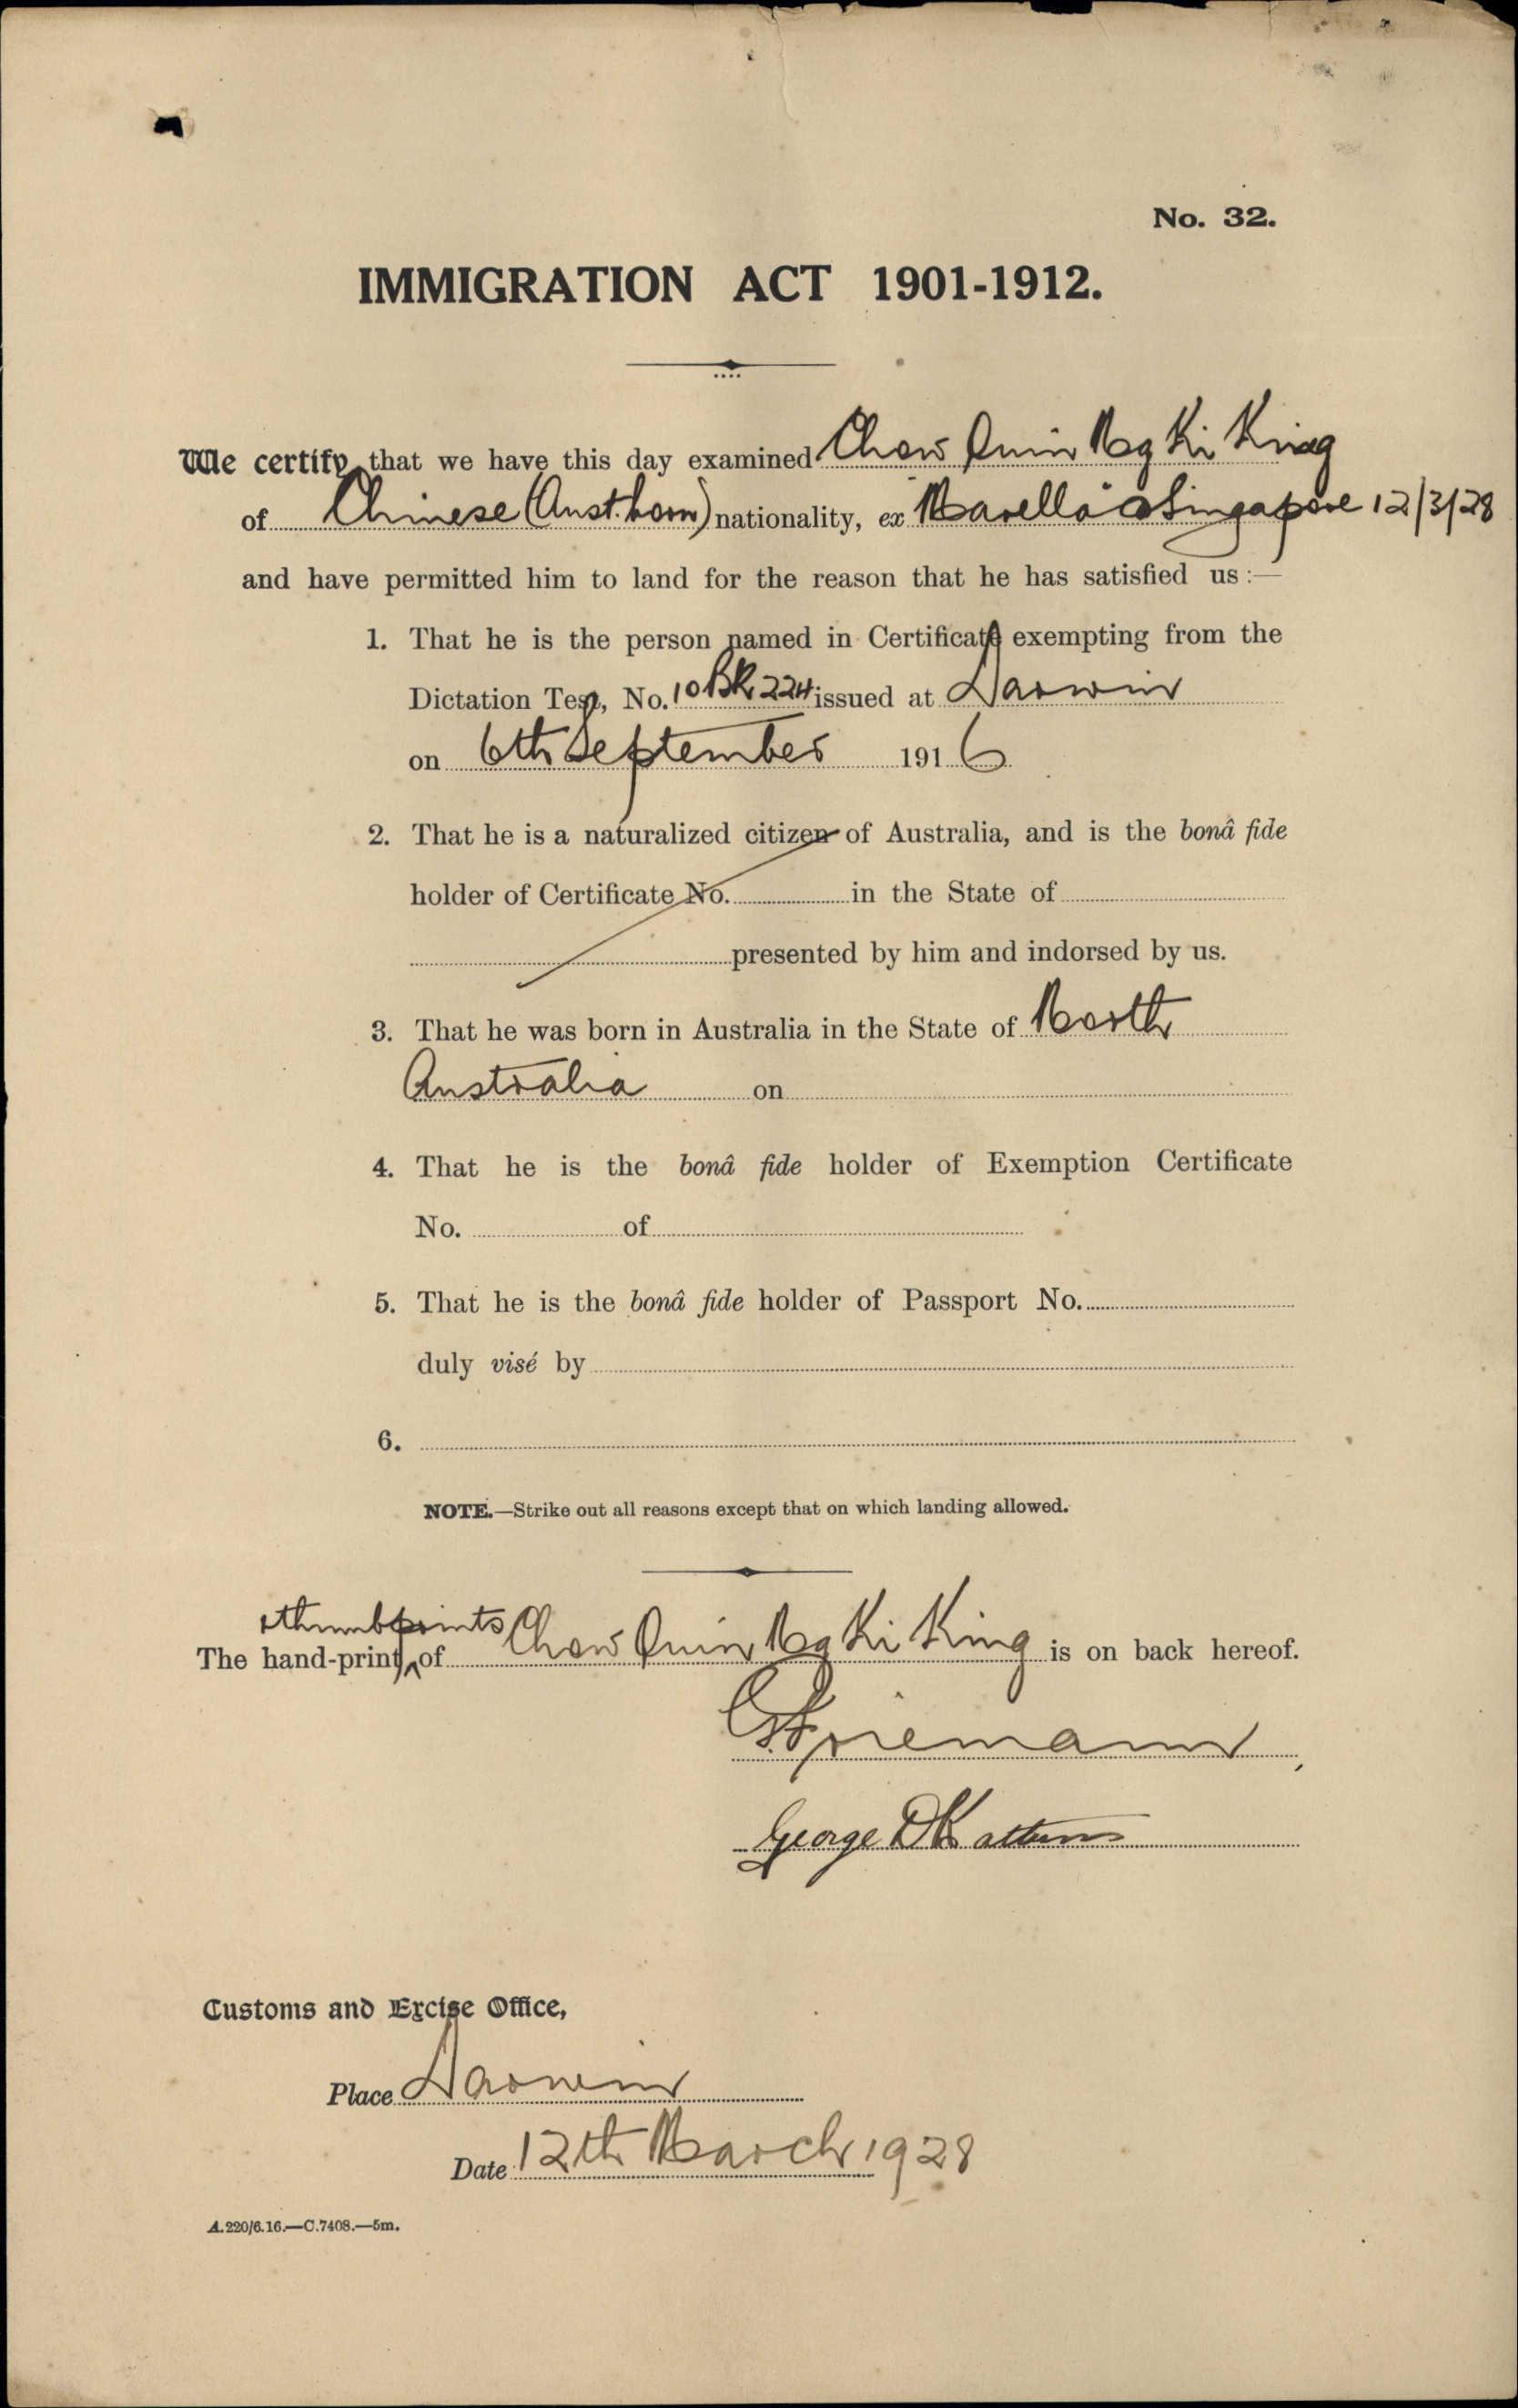 No. 32.
IMMIGRATION ACT 1901-1912.
We certify that we have this day examined Chow Quin Ng Ki King
of Chinese (Aust. born) nationality, ex "Marella" Singapore 12/3/28
and have permitted him to land for the reason that he has satisfied us:—
1. That he is the person named in Certificate exempting from the
Dictation Test, No. 10 BK 224 issued at Darwin
on 6th September 1916
2. That he is a naturalized citizen of Australia, and is the bonâ fide
holder of Certificate No. in the State of
presented by him and indorsed by us.
3. That he was born in Australia in the State of North
Australia on
4. That he is the bonâ fide holder of Exemption Certificate
No. of
5. That he is the bonâ fide holder of Passport No.
duly visé by
6.
NOTE.—Strike out all reasons except that on which landing allowed.
thumbprints
The hand-print of Chow Quin Ng Ki King is on back hereof.
George
Customs and Excise Office,
Place Darwin
Date 12th March 1928
A.220/6.16.—C.7408.—5m.